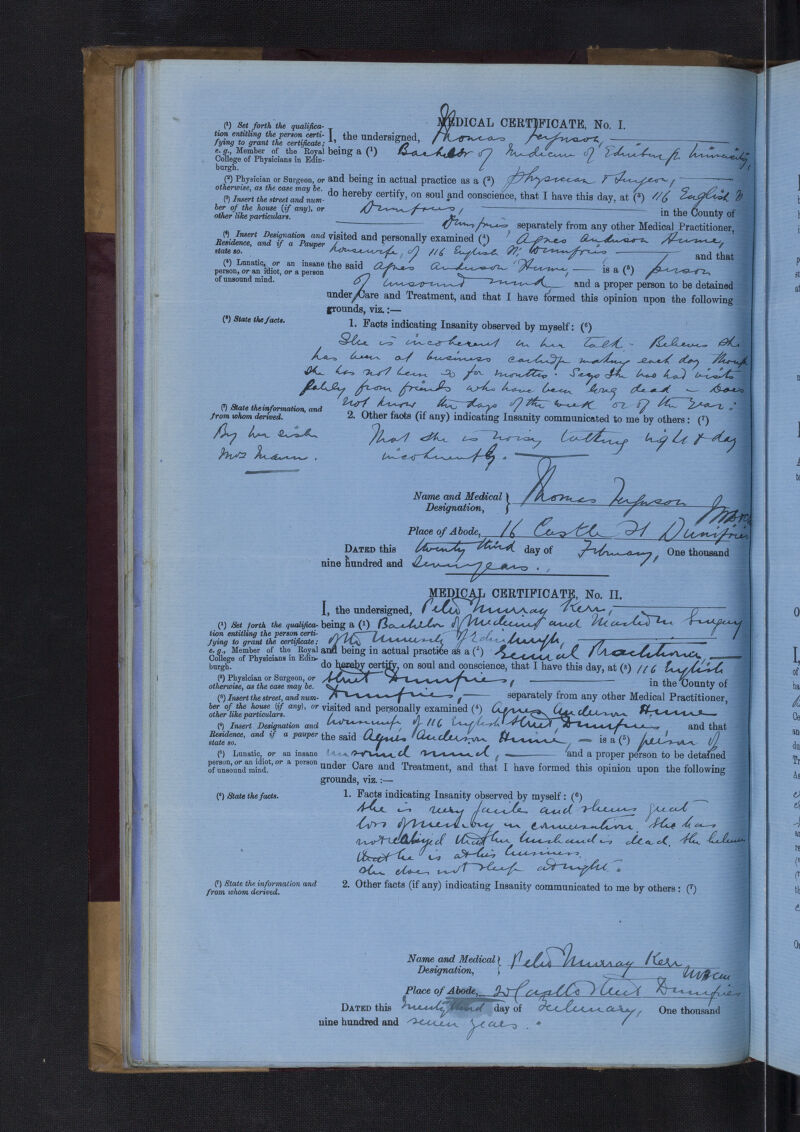 (¹) Set forth the qualification entitling the person certifying to grant the certificate; e.g., Member of the Royal College of Physicians in Edinburgh.
(²) Physician or Surgeon, or otherwise, as the case may be.
(³) Insert the street and number of the house (if any), or other like particulars.
(⁴) Insert Designation and Residence, and if a Pauper state so.
(⁵) Lunatic, or an insane person, or an idiot, or a person of unsound mind.
(⁶) State the facts.
(⁷) State the information, and from whom derived.
MEDICAL CERTIFICATE, No. I.
I, the undersigned, Thomas Ferguson
being a (¹) Bachelor of Medicine of Edinburgh University,
and being in actual practice as a (²) Physician & Surgeon,
do hereby certify, on soul and conscience, that I have this day, at (³) 116 English St
Dumfries, in the County of
Dumfries, separately from any other Medical Practitioner,
visited and personally examined (⁴) Agnes Anderson Hume,
housewife, of 116 English St Dumfries and that
the said Agnes Anderson Hume, is a (⁵) person
of unsound mind and a proper person to be detained
under Care and Treatment, and that I have formed this opinion upon the following
grounds, viz.:—
1. Facts indicating Insanity observed by myself: (⁶)
She is incoherent in her talk - Believes she
has been at business making each day though
she has not been so for months: Says she has had visits
lately from friends who have been long dead - Does
not know the days of the week or of the year.
2. Other facts (if any) indicating Insanity communicated to me by others: (⁷)
By her sister
Mrs Mann.
That she is noisy talking night & day
incoherently.
Name and Medical Designation, Thomas Ferguson
Place of Abode, 16 Castle St Dumfries
DATED this twenty third day of February, One thousand
nine hundred and seven years.
MEDICAL CERTIFICATE, No. II.
(¹) Set forth the qualification entitling the person certifying to grant the certificate; e.g., Member of the Royal College of Physicians in Edinburgh.
(²) Physician or Surgeon, or otherwise, as the case may be.
(³) Insert the street, and number of the house (if any), or other like particulars.
(⁴) Insert Designation and Residence, and if a pauper state so.
(⁵) Lunatic, or an insane person, or an idiot, or a person of unsound mind.
(⁶) State the facts.
(⁷) State the information and from whom derived.
I, the undersigned, Murray Kerr,
being a (¹) Bachelor of Medicine and Master in Surgery
of the University of Edinburgh,
and being in actual practice as a (²) General Practitioner,
do hereby certify, on soul and conscience, that I have this day, at (³) 116 English
Street Dumfries, in the County of
Dumfries, separately from any other Medical Practitioner,
visited and personally examined (⁴) Agnes Anderson Hume
housewife, of 116 English Street, Dumfries, and that
the said Agnes Anderson Hume, is a (⁵) person of
unsound mind, and a proper person to be detained
under Care and Treatment, and that I have formed this opinion upon the following
grounds, viz.:—
1. Facts indicating Insanity observed by myself: (⁶)
She is very facile and shews great
loss of memory in conversation. She has
not realised that her husband is dead, she believes
that he is at his business.
She does not sleep at night.
2. Other facts (if any) indicating Insanity communicated to me by others: (⁷)
Name and Medical Designation, Murray Kerr
Place of Abode, Castle Street Dumfries
DATED this twenty third day of February, One thousand
nine hundred and seven years.